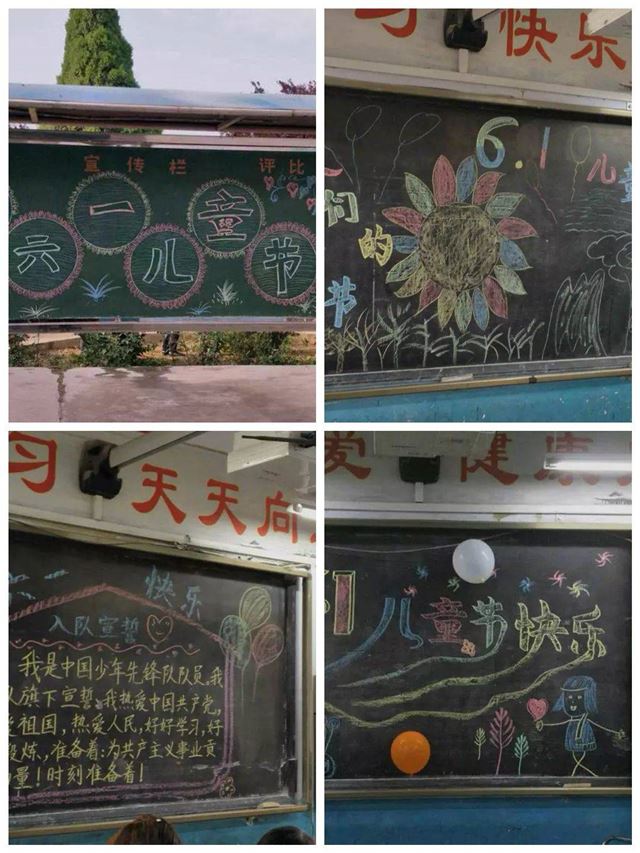 宣传栏 评比
六一儿童节
习 快乐
6.1 儿童
们的
节
习 天天向
快乐
入队宣誓
我是中国少年先锋队队员。我
旗下宣誓:我热爱中国共产党,
祖国,热爱人民,好好学习,好
炼,准备着:为共产主义事业贡
量!时刻准备着!
爱 健康
61 儿童节快乐